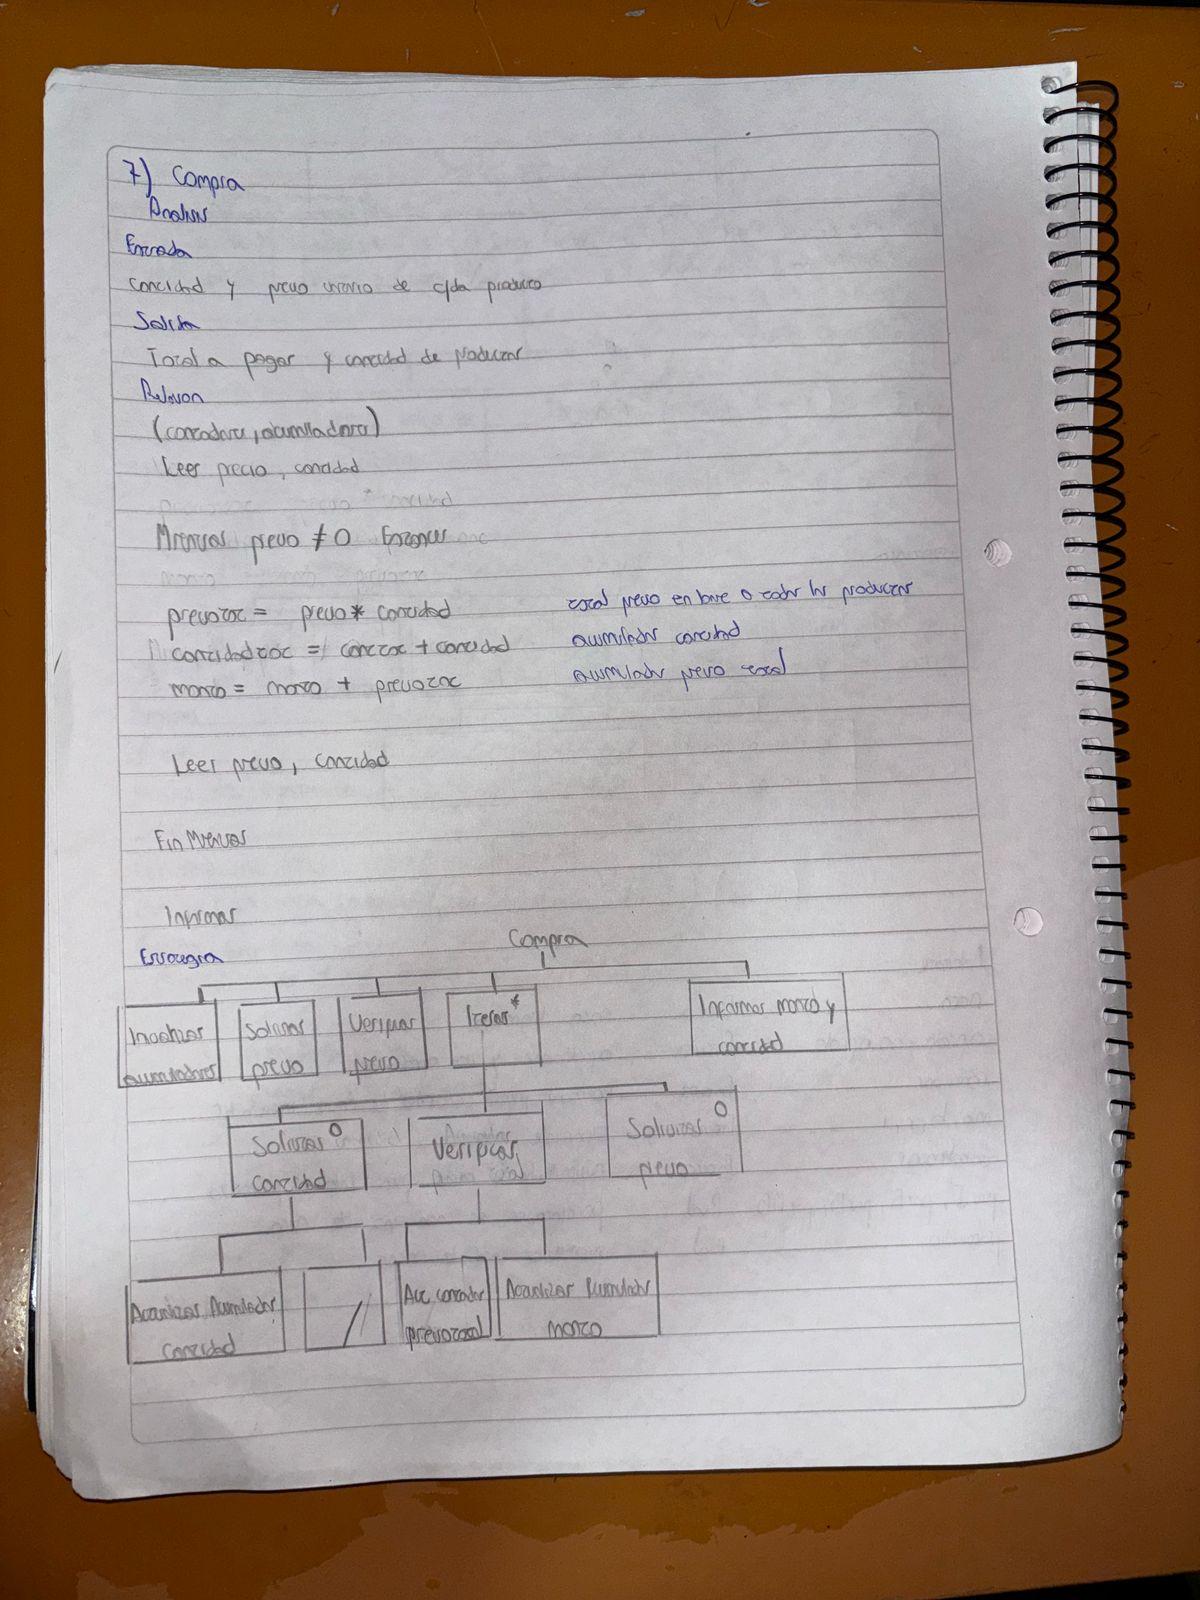 7) Compra
Analisis
Entrada
Cantidad y precio unitario de c/da producto
Salida
Total a pagar y cantidad de productos
Relacion
(contadora, acumuladora)
Leer precio, cantidad
Mientras precio ≠ 0 Entonces
preciotot = precio * cantidad
total precio en base a todos los productos
cantidadtot = canttot + cantidad
acumulador cantidad
monto = monto + preciotot
acumulador precio total
Leer precio, cantidad
Fin Mientras
Informar
Compra
Estrategia
Inicializar acumuladores
Solicitar precio
Verificar precio
Iterar *
Informar monto y cantidad
Solicitar cantidad O
Verificar
Solicitar precio O
Actualizar Acumulador cantidad
Act contador preciototal
Actualizar Acumulador monto